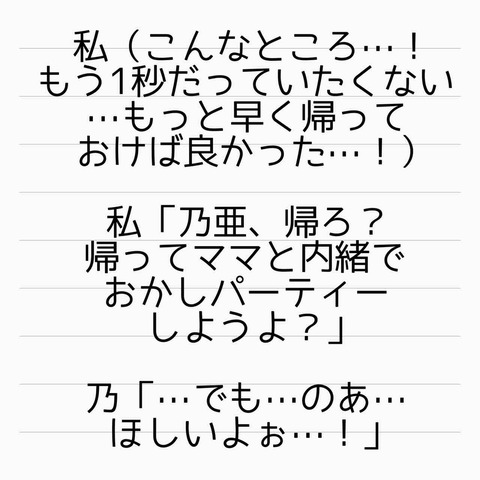 私（こんなところ…！
もう1秒だっていたくない
…もっと早く帰って
おけば良かった…！）
私「乃亜、帰ろ？
帰ってママと内緒で
おかしパーティー
しようよ？」
乃「…でも…のあ…
ほしいよぉ…！」